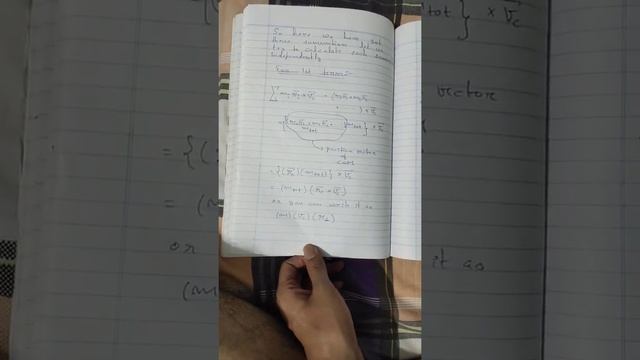 So here we have got
three summations let us
try to calculate each summ
independently
For 1st term:-
∑ m₁ r₁ × v⃗c = (m₁r₁ + m₂r₂
+ ) × v⃗c
= { (m₁r₁ + m₂r₂ + / mtot) (mtot) } × v⃗c
position vector
of
com
= {(r⃗c)(mtot)} × v⃗c
= (mtot) (r⃗c × v⃗c)
or you can write it as
(m) (vc) (r⊥)